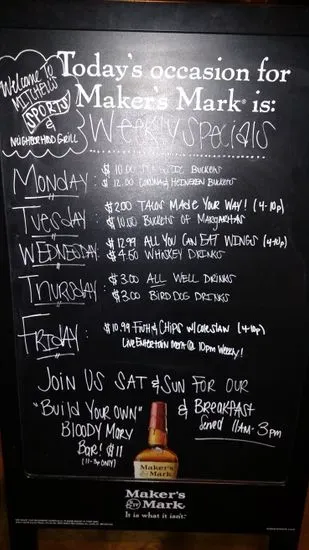 Welcome to
MITCHELL'S
SPORTS
&
NEIGHBORHOOD GRILL
Today's occasion for
Maker's Mark® is:
Weekly Specials
MONDAY: $10.00 BUCKETS
$12.00 CORONA & HEINEKEN BUCKETS
TUESDAY: $2.00 TACOS MADE YOUR WAY! (4-10p)
$10.00 BUCKETS OF MARGARITAS
WEDNESDAY: $12.99 ALL YOU CAN EAT WINGS (4-10p)
$4.50 WHISKEY DRINKS
THURSDAY: $3.00 ALL WELL DRINKS
$3.00 BIRD DOG DRINKS
FRIDAY: $10.99 FISH & CHIPS W/ COLESLAW (4-10p)
LIVE ENTERTAINMENT @ 10pm Weekly!
JOIN US SAT & SUN FOR OUR
"Build Your OWN" & BREAKFAST
BLOODY MARY Served 11AM-3pm
BAR! $11
(11-3p ONLY)
Maker's
Mark
Maker's
Mark
It is what it isn't.